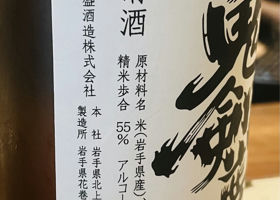 鬼剣舞
清酒
原材料名 米(岩手県産)、
精米歩合 55% アルコー
盛酒造株式会社
本 社 岩手県北上
製造所 岩手県花巻